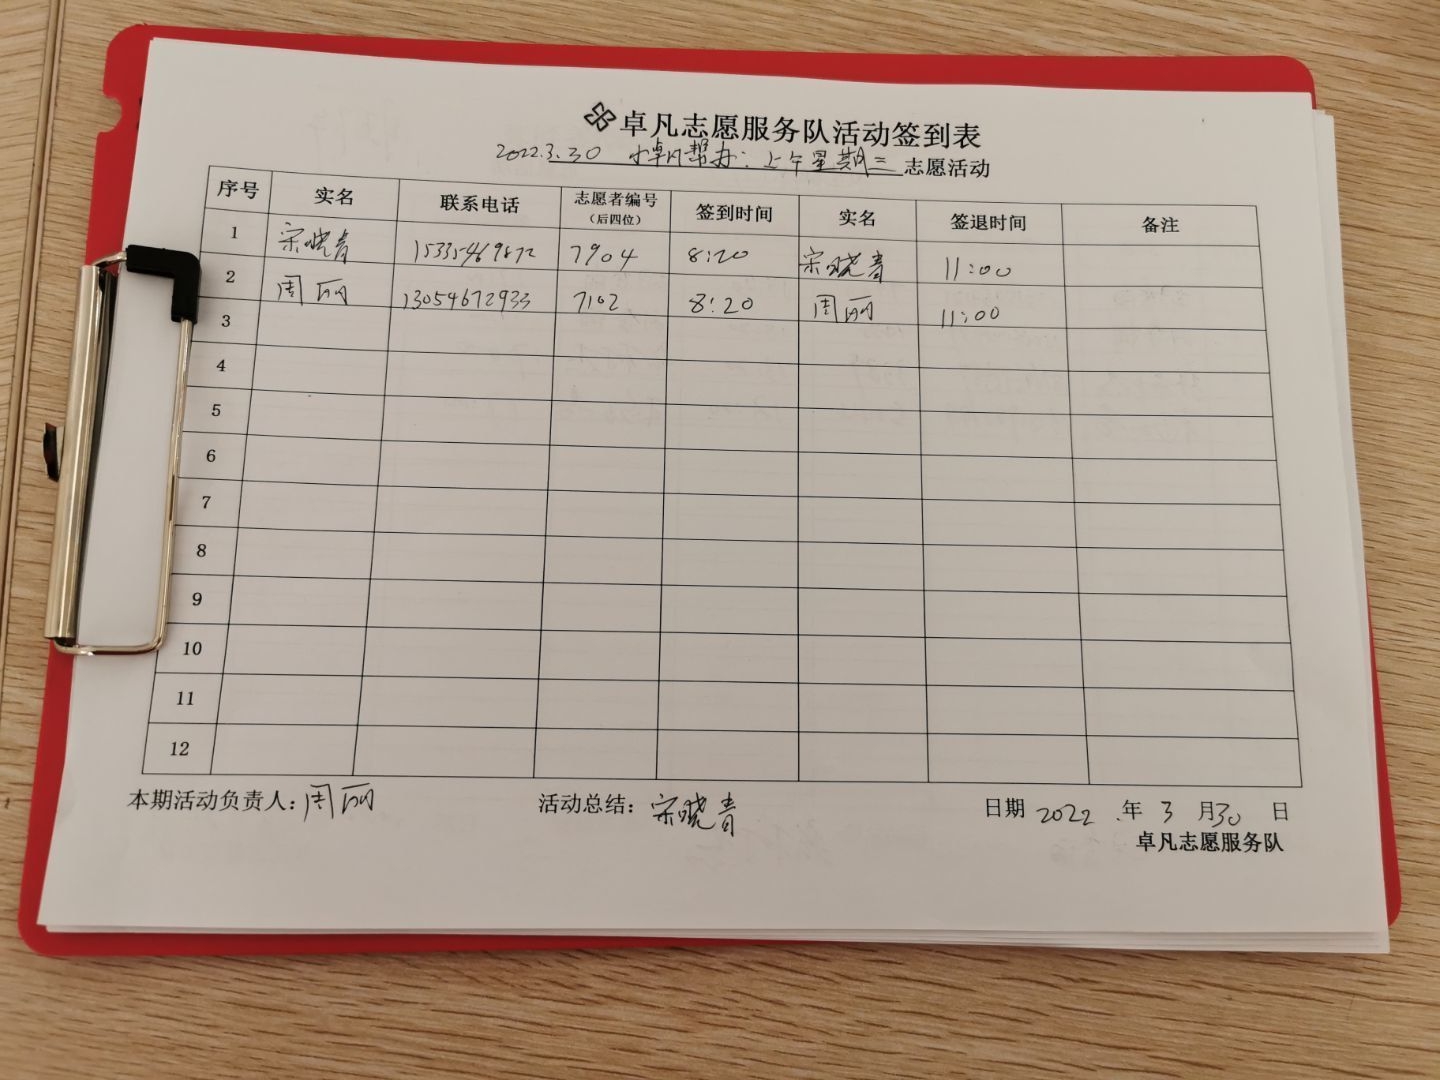 卓凡志愿服务队活动签到表
2022.3.30 小卓凡帮办:上午星期三 志愿活动
序号 实名 联系电话 志愿者编号（后四位） 签到时间 实名 签退时间 备注
1 宋晓青 15335469872 7904 8:20 宋晓青 11:00
2 周丽 13054672933 7102 8:20 周丽 11:00
3
4
5
6
7
8
9
10
11
12
本期活动负责人:周丽 活动总结:宋晓青 日期 2022.年 3 月30 日
卓凡志愿服务队